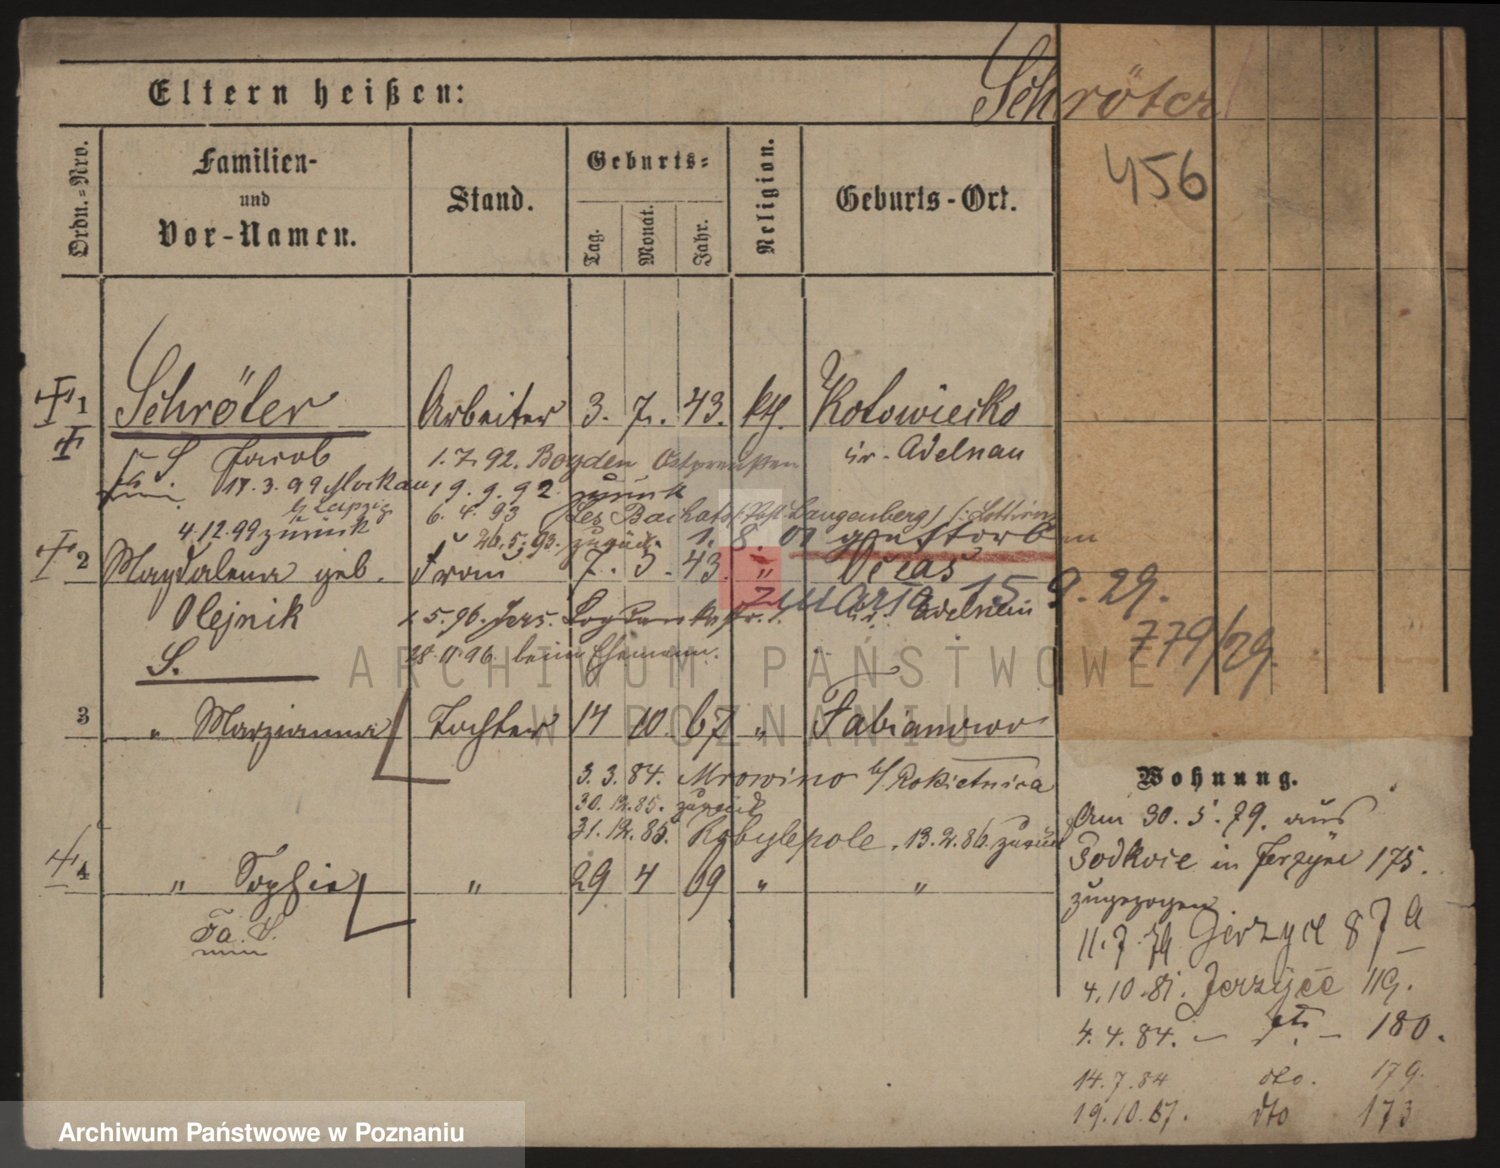 Eltern heißen:
Schröter
456
Ordn.-Nro.
Familien-
und
Vor-Namen.
Stand.
Geburts-
Tag.
Monat.
Jahr.
Religion.
Geburts-Ort.
1 Schröter Arbeiter 3. 7. 43. kth. Kotowiecko
S. Jacob 1.7.92. Bogden Ostpreußen Kr. Adelnau
17.3.99 Mockau 19.9.92 zurück
b/ Leipzig
6.4.93 Les Bachats Langenberg
4.12.99 zurück 26.5.93. zurück. 1.8.01 gestorben
2 Magdalena geb. Frau 7. 5. 43. "
Olejnik 1.5.96. Jers. Kr. Adelnau
zmarła 15.9.29.
779/29.
S. 96. beim Ehemann.
3 " Marzianna Tochter 14 10. 67 " Fabianowo
3.3.84. Mrowino b/ Rokietnica
30.12.85. zurück
31.12.85. Kobylepole. 13.2.86. zurück
4 " Sophie " 29 4 69 " "
Fa. S.
Wohnung.
Am 30.5.79. aus
Podkoce in Jerzyce 175.
zugezogen
11.7.79 Jerzyce 87a
4.10.81. Jerzyce 119.
4.4.84. — dto. — 180.
14.7.84 dto. 179.
19.10.87. dto 173
ARCHIWUM PAŃSTWOWE
W POZNANIU
Archiwum Państwowe w Poznaniu